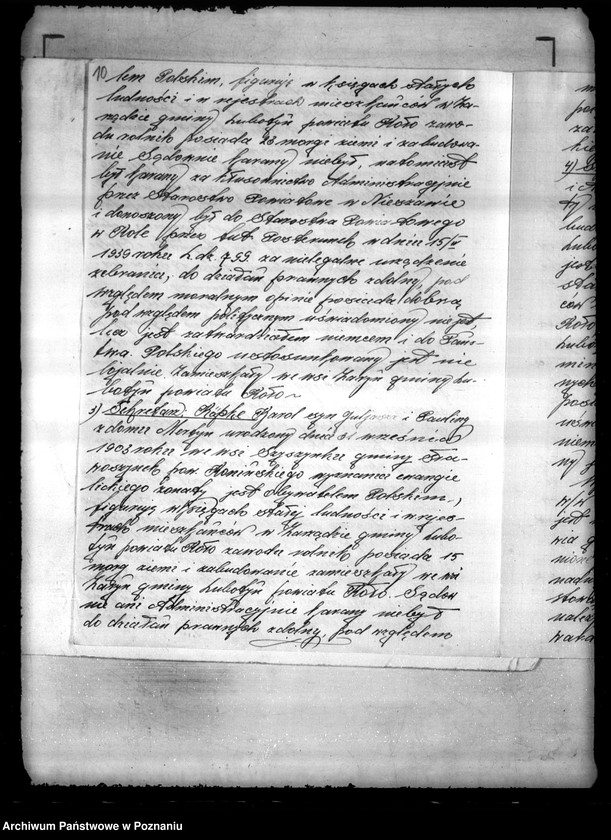 10
lem Polskim, figuruje w księgach stałych
ludności i w rejestrach mieszkańców w Za-
rządzie gminy Lubotyń powiatu Koło zawo-
du rolnik posiada 23 morgi ziemi i zabudowa-
nie Sądownie karany niebył, natomiast
był karany za kłusownictwo Administracyjnie
przez Starostwo Powiatowe w Nieszawie
i donoszony był do Starostwa Powiatowego
w Kole przez tut. Posterunek w dniu 15/
1939 roku L.dz. 799 za nielegalne urządzenie
zebrania, do działań prawnych zdolny, pod
względem moralnym opinie posiada dobrą
pod względem politycznym uświadomiony nie jest
lecz jest zatwardziałem niemcem i do Pań-
stwa Polskiego ustosunkowany jest nie
lojalnie zamieszkały we wsi gminy Lu-
botyń powiatu Koło
3) Sekretarz Karol syn i Pauliny
z domu urodzony dnia 21 września
1903 roku we wsi Szyszynku gminy
pow. Konińskiego wyznania ewangie
lickiego żonaty jest obywatelem Polskiem,
figuruje w księgach stałej ludności i w rejes-
trach mieszkańców w Zarządzie gminy Lubo-
tyń powiatu Koło zawodu rolnik posiada 15
morg ziemi i zabudowanie zamieszkały we wsi
gminy Lubotyń powiatu Koło. Sądow
nie ani Administracyjnie karany niebył
do działań prawnych zdolny, pod względem
4)
Archiwum Państwowe w Poznaniu